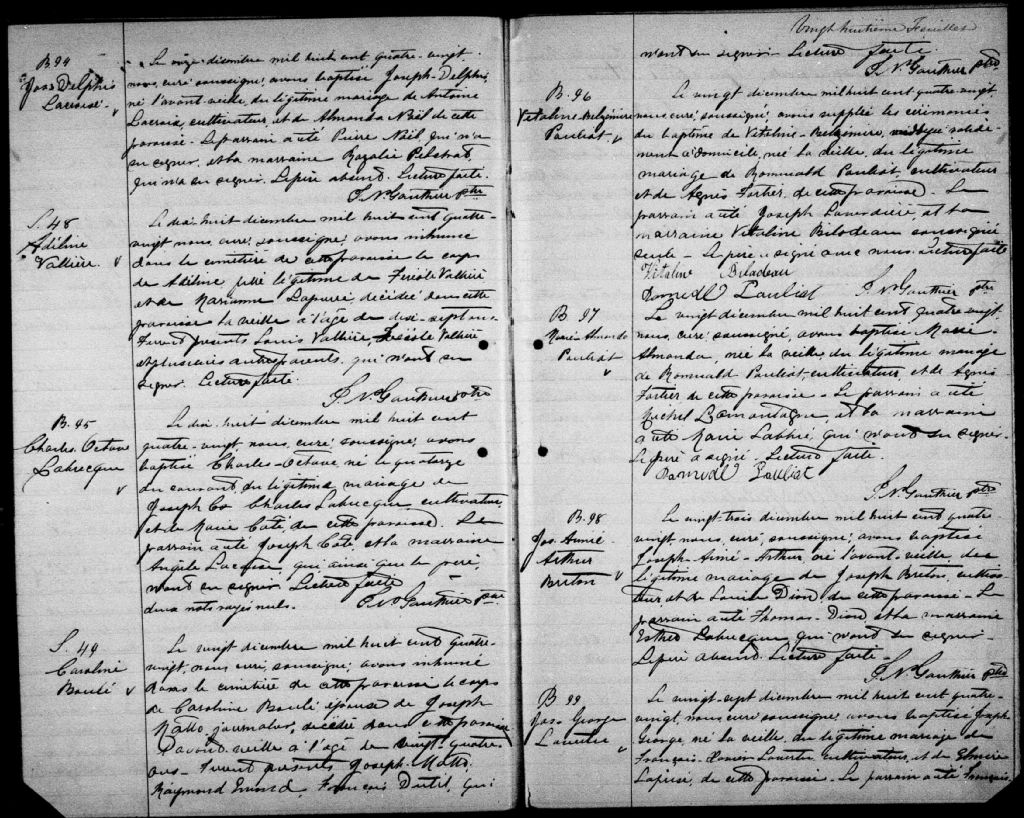 B. 94
Jos. Delphis
Lacroix
Le onze décembre mil huit cent quatre-vingt
nous, curé soussigné, avons baptisé Joseph-Delphis
né l'avant-veille, du légitime mariage de Antoine
Lacroix, cultivateur, et de Almonda Nöel de cette
paroisse. Le parrain a été Pierre Nöel qui n'a
su signer, et la marraine Rozalie
qui n'a su signer. Le père absent. Lecture faite.
J. N. Gauthier ptre
S. 48
Adéline
Vallière
Le dix-huit décembre mil huit cent quatre-
vingt nous, curé, soussigné, avons inhumé
dans le cimetière de cette paroisse le corps
de Adéline fille légitime de Vallière
et de Marianne décédée dans cette
paroisse la veille à l'âge de dix-sept ans.
Furent présents Louis Vallière, Vallière
et plusieurs autres parents, qui n'ont su
signer. Lecture faite.
J. N. Gauthier ptre
B. 95
Charles. Octave
Labrecque
Le dix-huit décembre mil huit cent
quatre-vingt, nous, curé soussigné, avons
baptisé Charles-Octave né le quatorze
du courant, du légitime mariage de
Joseph Charles Labrecque cultivateur,
et de Marie Coté, de cette paroisse. Le
parrain a été Joseph Coté, et la marraine
Angèle qui, ainsi que le père,
n'ont su signer. Lecture faite
deux mots rayés nuls. J. N. Gauthier ptre
S. 49
Caroline
Boulé
Le vingt décembre mil huit cent quatre-
vingt, nous, curé, soussigné, avons inhumé
dans le cimetière de cette paroisse le corps
de Caroline Boulé épouse de Joseph
journalier, décédée dans cette paroisse
l'avant-veille à l'âge de vingt-quatre
ans. Furent présents Joseph
Raymond Emond, François Dutil, qui
Vingt huitième Feuillet
n'ont su signer. Lecture faite
J. N. Gauthier ptre
B. 96
Vitaline Belzémire
Pouliot
Le vingt décembre mil huit cent quatre-vingt
nous, curé, soussigné, avons supplié les cérémonies
du baptême de Vitaline-Belzémire,
à domicile, née la veille, du légitime
mariage de Romuald Pouliot, cultivateur
et de Agnès Fortier, de cette paroisse. Le
parrain a été Joseph et la
marraine Vitaline Bilodeau soussignée
seule. Le père a signé avec nous. Lecture faite
Vitaline Biladeau
Domuell Pauliot J. N. Gauthier ptre
B. 97
Marie Almonda
Pouliot
Le vingt décembre mil huit cent quatre vingt,
nous, curé, soussigné, avons baptisé Marie
Almonda, née la veille, du légitime mariage
de Romuald Pouliot, cultivateur, et de Agnès
Fortier de cette paroisse. Le parrain a été
Michel Lamontagne et la marraine
a été Marie Labbé, qui n'ont su signer.
Le père a signé. Lecture faite.
Domuell Pauliot
J. N. Gauthier ptre
B. 98
Jos. Aimé
Arthur
Breton
Le vingt-trois décembre mil huit cent quatre-
vingt, nous, curé, soussigné, avons baptisé
Joseph-Aimé-Arthur né l'avant-veille, du
légitime mariage de Joseph Breton, cultiva-
teur, et de Louise Dion, de cette paroisse. Le
parrain a été Thomas Dion et la marraine
Esther Labrecque qui n'ont su signer.
Le père absent. Lecture faite.
J. N. Gauthier ptre
B 99
Jos. George
Le vingt-sept décembre mil huit cent quatre-
vingt, nous, curé, soussigné, avons baptisé Joseph-
George, né la veille, du légitime mariage de
François-Xavier cultivateur, et de Elmire
de cette paroisse. Le parrain a été François